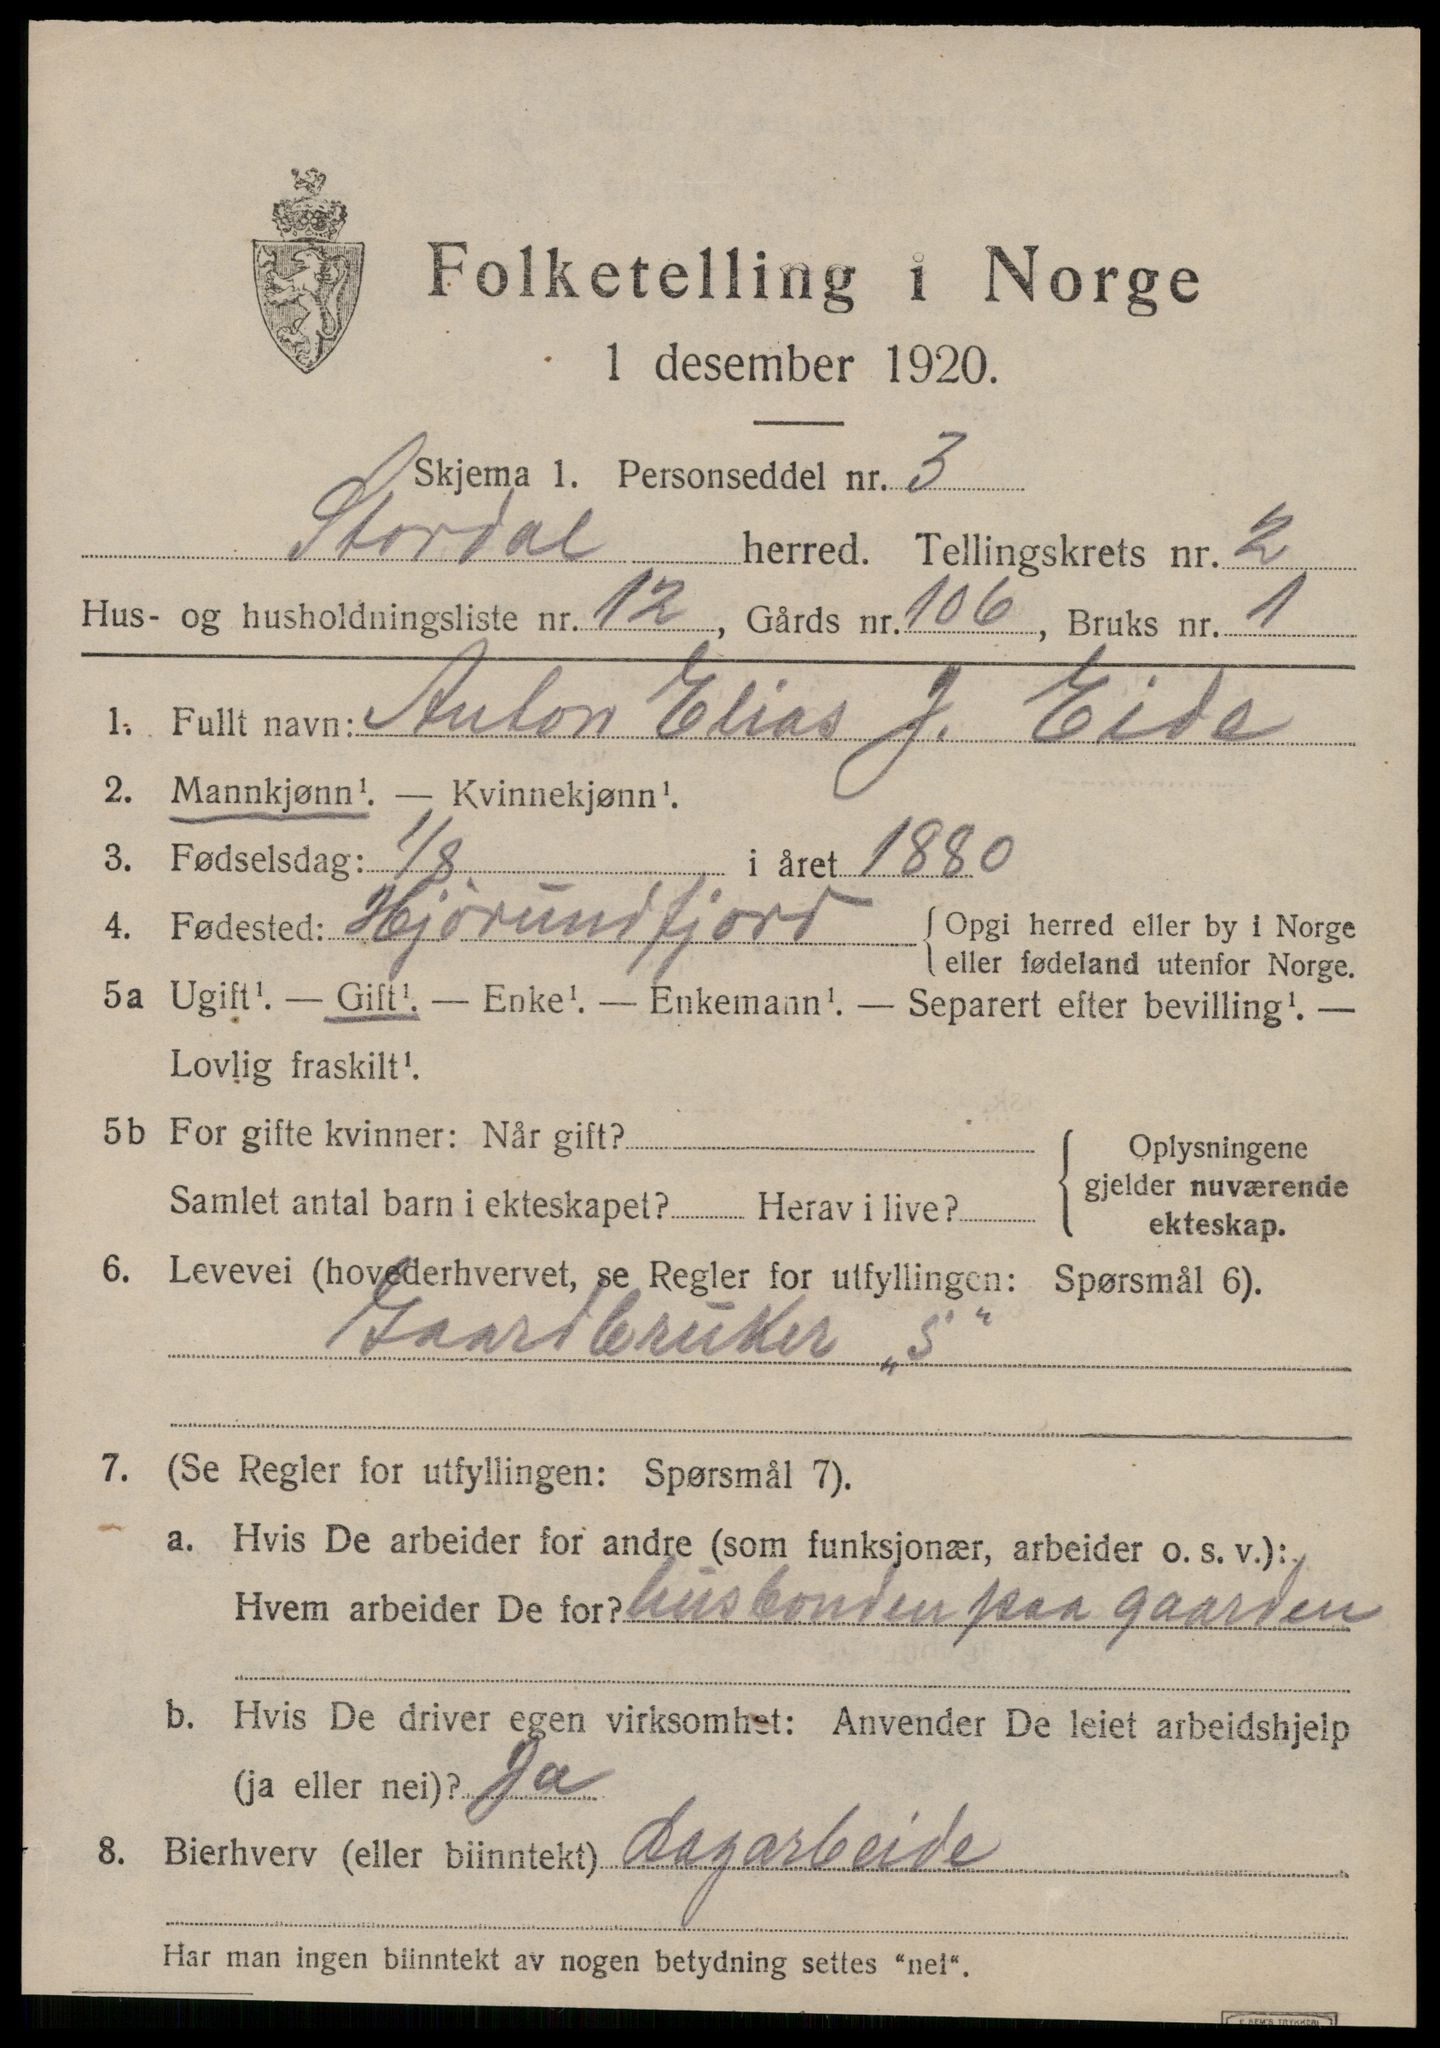 Folketelling i Norge
1 desember 1920.
Skjema 1. Personseddel nr. 3
Stordal herred. Tellingskrets nr. 2
Hus- og husholdningsliste nr. 12, Gårds nr. 106, Bruks nr. 1
1. Fullt navn: Anton Elias J. Eide
2. Mannkjønn¹. — Kvinnekjønn¹.
3. Fødselsdag: 1/8 i året 1880
4. Fødested: Hjørundfjord { Opgi herred eller by i Norge
eller fødeland utenfor Norge.
5a Ugift¹. — Gift¹. — Enke¹. — Enkemann¹. — Separert efter bevilling¹. —
Lovlig fraskilt¹.
5b For gifte kvinner: Når gift?
Samlet antal barn i ekteskapet? Herav i live?
{ Oplysningene
gjelder nuværende
ekteskap.
6. Levevei (hovederhvervet, se Regler for utfyllingen: Spørsmål 6).
Gaardbruker „S“
7. (Se Regler for utfyllingen: Spørsmål 7).
a. Hvis De arbeider for andre (som funksjonær, arbeider o. s. v.):
Hvem arbeider De for? husbonden paa gaarden
b. Hvis De driver egen virksomhet: Anvender De leiet arbeidshjelp
(ja eller nei)? Ja
8. Bierhverv (eller biinntekt) dagarbeide
Har man ingen biinntekt av nogen betydning settes "nei".